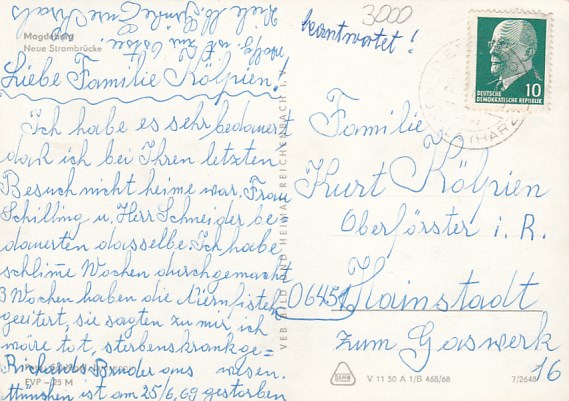 Magdeburg
Neue Strombrücke
Liebe Familie Kölpien!
Ich habe es sehr bedauert
daß ich bei Ihren letzten
Besuch nicht heime war. Frau
Schilling u. Herr Schneider be-
dauerten dasselbe. Ich habe
schlime Wochen durchgemacht
3 Wochen haben die Niernfisteln
geeitert, sie sagten zu mir, ich
wäre tot, sterbenskrank ge=
wesen.
Richards Bruder aus
München ist am 25/6.69 gestorben
EVP –25 M
VEB BILD UND HEIMAT REICHENBACH I. V.
3000
beantwortet!
DEUTSCHE
DEMOKRATISCHE REPUBLIK
10
(HARZ)
Familie
Kurt Kölpien
Oberförster i. R.
06451 Hainstadt
zum Gaswerk
16
V 11 50 A 1/B 468/68
7/2648